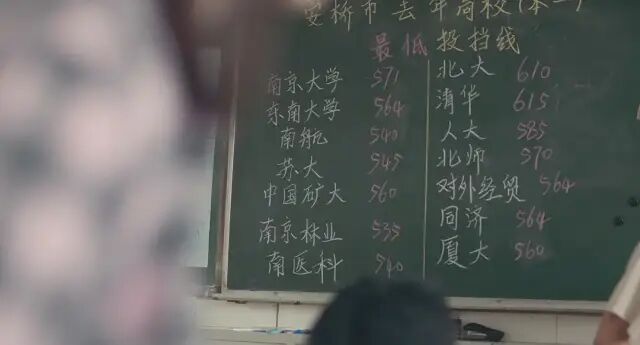 安桥市去年高校(本一)
最低投挡线
南京大学 571
东南大学 564
南航 540
苏大 545
中国矿大 560
南京林业 535
南医科 540
北大 610
清华 615
人大 585
北师 570
对外经贸 564
同济 564
厦大 560